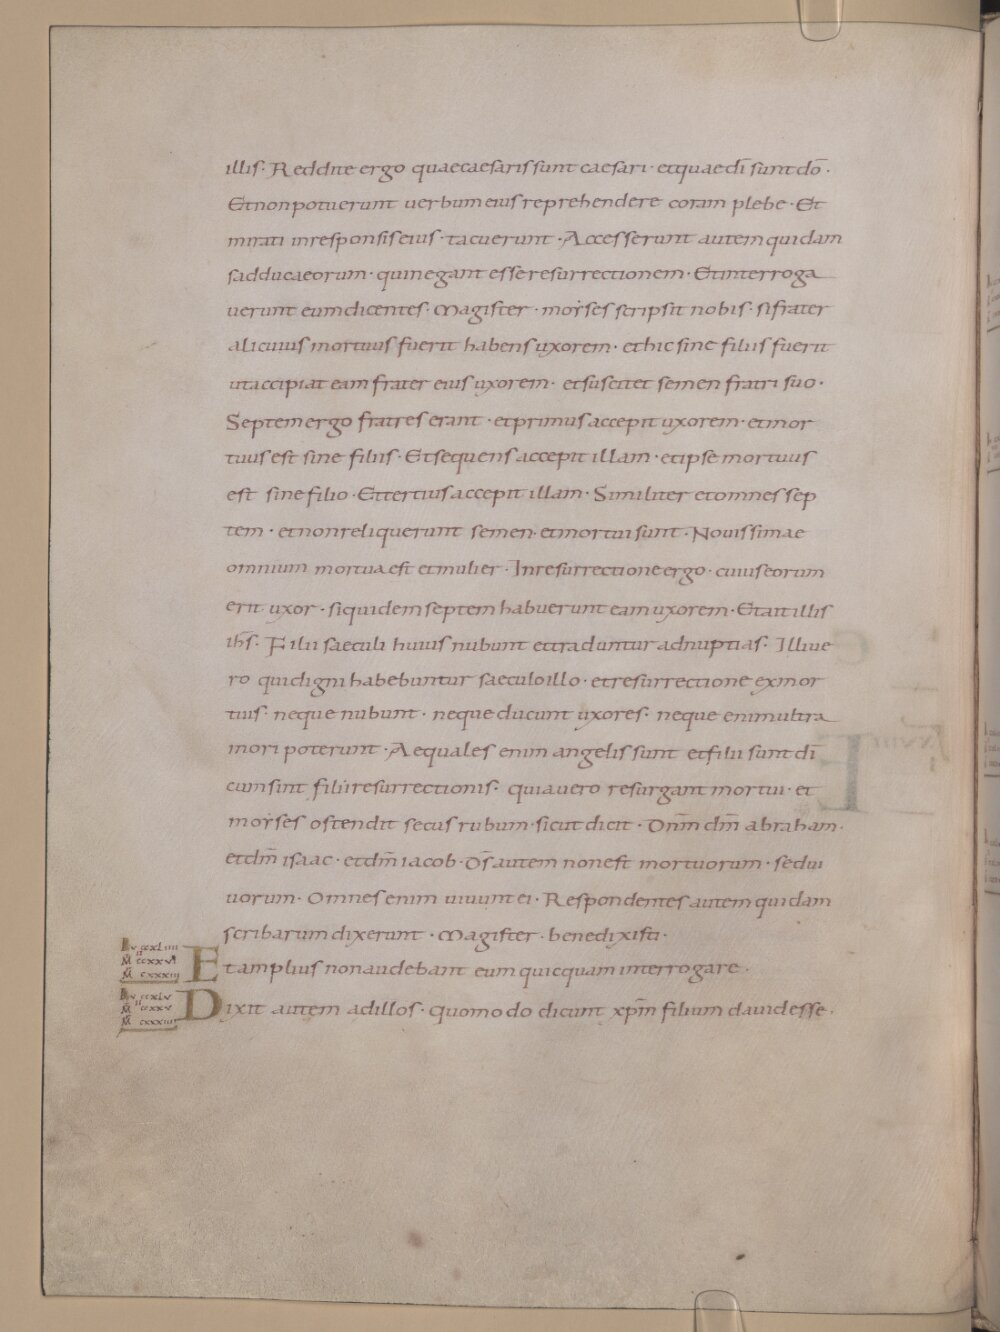 illis· Reddite ergo quaecaesarissunt caesari· etquaedī suntdō·
Etnonpotuerunt uerbumeiusreprehendere coram plebe· Et
mirati inresponsiseius· tacuerunt· Accesserunt autemquidam
sadducaeorum· quinegant esseresurrectionem· Etinterroga
uerunt eumdicentes· Magister· moẏses scripsit nobis· sifrater
alicuius mortuus fuerit habens uxorem· ethic sine filiis fuerit
utaccipiat eam frater eius uxorem· etsuscitet semen fratri suo·
Septem ergo fratres erant· etprimus accepit uxorem· etmor
tuus est sine filiis· Etsequens accepit illam· etipse mortuus
est sine filio· Ettertius accepit illam· Similiter etomnes sep
tem· etnonreliquerunt semen· etmortui sunt· Nouissimae
omnium mortua est etmulier· Inresurrectione ergo· cuius eorum
erit uxor· siquidem septem habuerunt eam uxorem· Etait illis
ihs̄· Filii saeculi huius nubunt ettraduntur adnuptias· Illi ue
ro quidigni habebuntur saeculo illo· etresurrectione exmor
tuis· neque nubunt· neque ducunt uxores· neque enim ultra
mori poterunt· Aequales enim angelis sunt etfilii sunt dī
cumsint filii resurrectionis· quia uero resurgant mortui· et
moẏses ostendit secus rubum· sicut dicit· Dnm̄ dm̄ abraham·
etdm̄ isaac· etdm̄ iacob· Ds̄ autem nonest mortuorum· sed ui
uorum· Omnes enim uiuunt ei· Respondentes autem quidam
scribarum dixerunt· Magister· benedixisti·
Etamplius nonaudebant eum quicquam interrogare·
Dixit autem adillos· quomodo dicunt xpm̄ filium dauid esse·